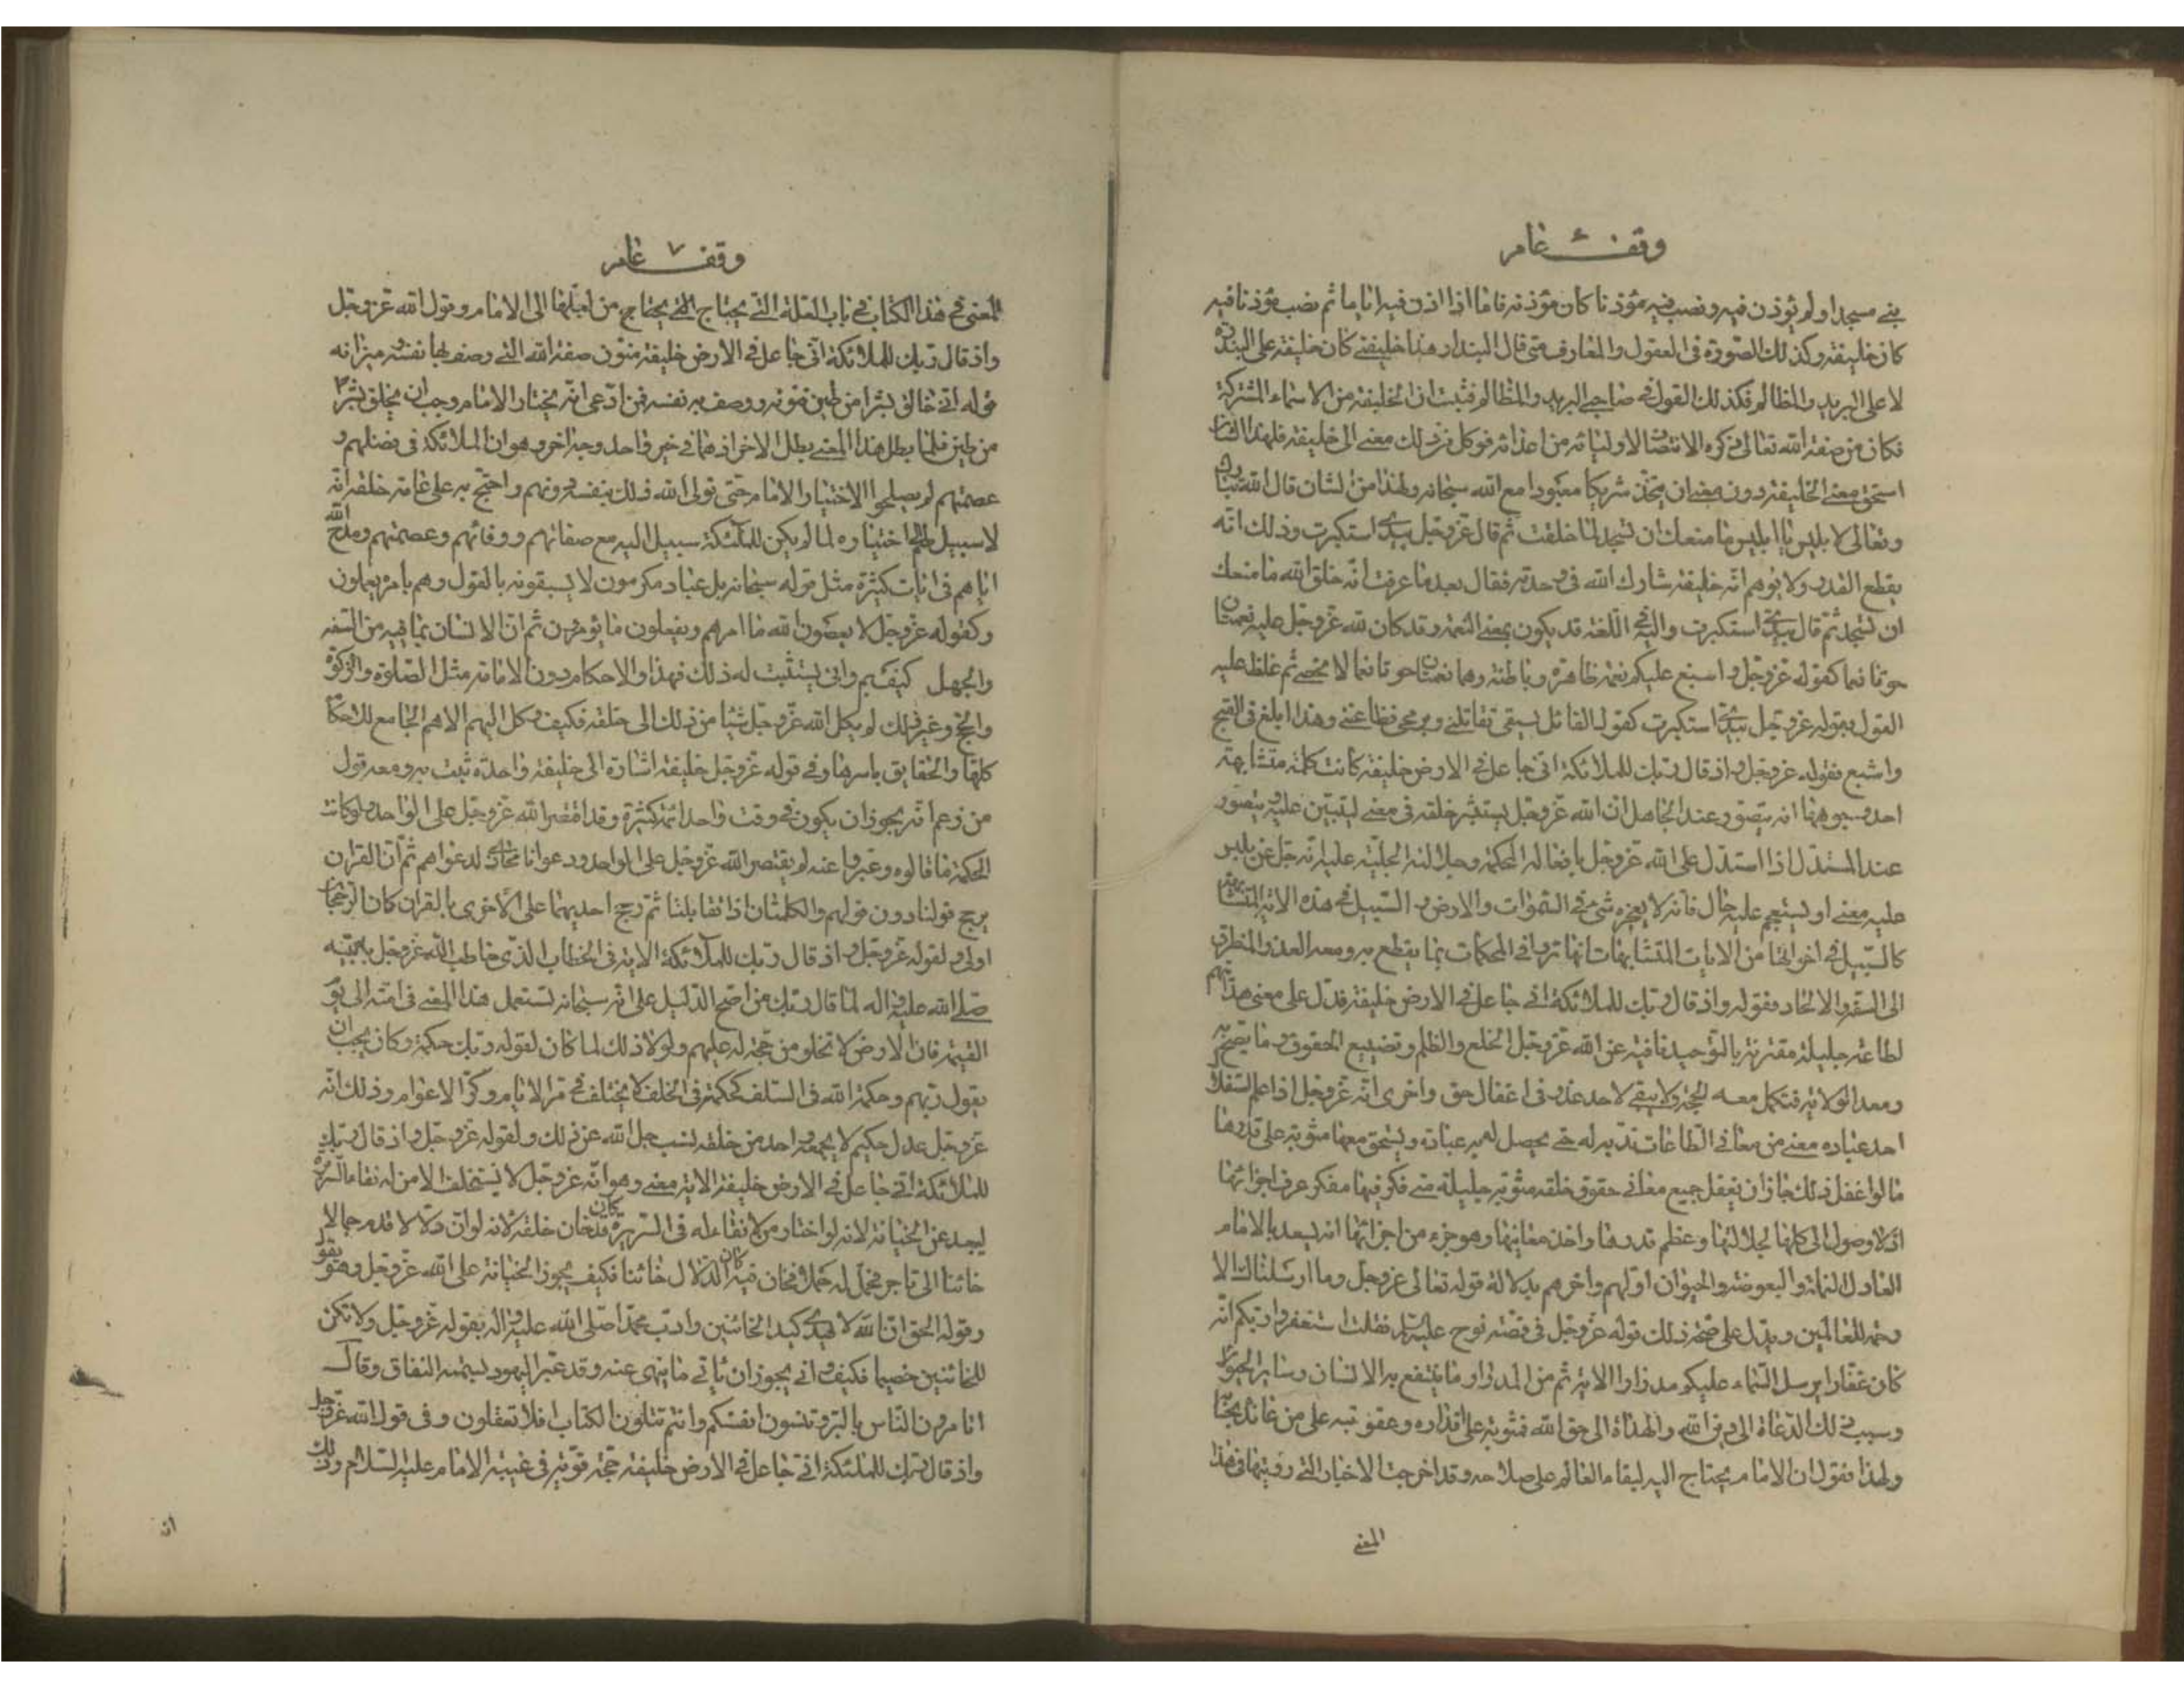 وقف ۶ عام
بنى مسجدا ولم يؤذن فيه ونصب فيه مؤذنا كان مؤذنه فاما اذا اذن فيه اياما ثم نصب مؤذنا فيه
كان خليفته وكذلك الصورة فى العقول والمعارف متى قال البندار هذا خليفتى كان خليفته على البندرة
لا على البريد والمظالم فكذلك القول فى صاحبى البريد والمظالم فثبت ان الخليفة من الاسماء المشتركة
فكان من صفة الله تعالى ذكره الانتصاف لاوليائه من اعدائه فوكل من ذلك معنى الى خليفته فلهذا الشان
استحق معنى الخليفة دون معنى ان يتخذ شريكا معبودا مع الله سبحانه ولهذا من الشان قال الله تبارك
وتعالى لابليس يا ابليس ما منعك ان تسجد لما خلقت ثم قال عز وجل بيدى استكبرت وذلك انه
يقطع العذر ولا يوهم انه خليفة شارك الله فى وحدته فقال بعد ما عرفت انه خلق الله ما منعك
ان تسجد ثم قال بيدى استكبرت واليد فى اللغة قد يكون بمعنى النعمة وقد كان لله عز وجل عليه نعمتان
حوتا نعما كقوله عز وجل واسبغ عليكم نعمه ظاهرة وباطنة وهما نعمتان حوتا نعما لا تحصى ثم غلظ عليه
القول بقوله عز وجل بيدى استكبرت كقول القائل بسيفى تقاتلنى وبرمحى تطاعننى وهذا ابلغ فى القبح
واشنع فقوله عز وجل واذ قال ربك للملائكة انى جاعل فى الارض خليفة كانت كلمة متشابهة
احد وجوهها انه يتصور عند الجاهل ان الله عز وجل يستشير خلقه فى معنى التبس عليه ويتصور
عند المستدل اذا استدل على الله عز وجل بافعاله المحكمة وجلالته الجليلة عليه انه جل عن يلبس
عليه معنى او يستعجم عليه حال فانه لا يعجزه شىء فى السموات والارض والسبيل فى هذه الاية المتشابهة
كالسبيل فى اخواتها من الايات المتشابهات انها ترد الى المحكمات بما يقطع به ومعه العذر للمتطرق
الى السفه والالحاد فقوله واذ قال ربك للملائكة انى جاعل فى الارض خليفة فدل على معنى هدايتهم
لطاعة جليلة مقترنة بالتوحيد نافية عن الله عز وجل الخلع والظلم وتضييع الحقوق وما يصح به
ومعه الولاية فتكمل معه الحجة ولا يبقى لاحد عذر فى اغفال حق واخرى انه عز وجل اذا علم استقلال
احد عباده معنى من معانى الطاعات ندبه له حتى يحصل له به عبادة ويستحق معها مثوبة على قدرها
ما لو اغفل ذلك جاز ان يغفل جميع معانى حقوق خلقه مثوبة جليلة متى فكر فيها مفكر عرف اجزائها
اذ لا وصول الى كلها لجلالتها وعظم قدرها واحد معانيها وهو جزء من اجزائها انه يسعد بالامام
العادل النملة والبعوضة والحيوان اولهم واخرهم بدلالة قوله تعالى عز وجل وما ارسلناك الا
رحمة للعالمين ويدل على صحة ذلك قوله عز وجل فى قصة نوح عليه السلام فقلت استغفروا ربكم انه
كان غفارا يرسل السماء عليكم مدرارا الاية ثم من المدرار ما ينتفع به الانسان وسائر الحيوان
وسبب ذلك الدعاة الى دين الله والهداة الى حق الله فمثوبته على اقداره وعقوبته على من عانده بحسابه
ولهذا نقول ان الامام يحتاج اليه لبقاء العالم على صلاحه وقد اخرجت الاخبار التى رويتها فى هذا
المعنى
وقف ۷ عام
المعنى فى هذا الكتاب فى باب العلة التى يحتاج التى يحتاج من اجلها الى الامام وقول الله عز وجل
واذ قال ربك للملائكة انى جاعل فى الارض خليفة منون صفة الله التى وصف بها نفسه وميزانه
قوله انى خالق بشرا من طين فنونه ووصف به نفسه فمن ادعى انه يختار الامام وجب ان يخلق بشرا
من طين فلما بطل هذا المعنى بطل الاخر اذ هما فى حيز واحد وجه اخر وهو ان الملائكة فى فضلهم و
عصمتهم لم يصلحوا لاختيار الامام حتى تولى الله ذلك بنفسه دونهم واحتج به على عامة خلقه انه
لا سبيل لهم الى اختياره لما لم يكن للملائكة سبيل اليه مع صفائهم ووفائهم وعصمتهم ومدح الله
اياهم فى ايات كثيرة مثل قوله سبحانه بل عباد مكرمون لا يسبقونه بالقول وهم بامره يعملون
وكقوله عز وجل لا يعصون الله ما امرهم ويفعلون ما يؤمرون ثم ان الانسان بما فيه من السفه
والجهل كيف وانى يستتب له ذلك فهذا والاحكام دون الامامة مثل الصلوة والزكوة
والحج وغير ذلك لم يكل الله عز وجل شيئا من ذلك الى خلقه فكيف وكل اليهم الاهم الجامع للاحكام
كلها والحقايق باسرها وفى قوله عز وجل خليفة اشارة الى خليفة واحدة ثبت به ومعه قول
من زعم انه يجوز ان يكون فى وقت واحد ائمة كثيرة وقد اقتصر الله عز وجل على الواحد ولو كانت
الحكمة ما قالوه وعبروا عنه لم يقتصر الله عز وجل على الواحد ودعوانا محاذ لدعواهم ثم ان القران
يرجح قولنا دون قولهم والكلمتان اذا تقابلتا ثم رجح احديهما على الاخرى بالقران كان الرجحان
اولى ولقوله عز وجل واذ قال ربك للملائكة الاية فى الخطاب الذى خاطب الله عز وجل به نبيه
صلى الله عليه واله لما قال ربك من اصح الدليل على انه سبحانه يستعمل هذا المعنى فى امته الى يوم
القيمة فان الارض لا تخلو من حجة له عليهم ولولا ذلك لما كان لقوله ربك حكمة وكان يجب ان
يقول ربهم وحكمة الله فى السلف كحكمته فى الخلف لا يختلف فى مر الايام وكر الاعوام وذلك انه
عز وجل عدل حكيم لا يجمعه واحد من خلقه نسب جل الله عن ذلك ولقوله عز وجل واذ قال ربك
للملائكة انى جاعل فى الارض خليفة الاية معنى وهو انه عز وجل لا يستخلف الا من له نقاء السريرة
ليبعد عن الخيانة لانه لو اختار من لا نقاء له فى السريرة كان قد خان خلقه لانه لو ان دلالا قدم حمالا
خائنا الى تاجر فحمل له حملا فخان فيه كان الدلال خائنا فكيف يجوز الخيانة على الله عز وجل وهو يقول
وقوله الحق ان الله لا يهدى كيد الخائنين وادب محمدا صلى الله عليه واله بقوله عز وجل ولا تكن
للخائنين خصيما فكيف وانى يجوز ان ياتى ما ينهى عنه وقد عير اليهود بسمة النفاق وقال
اتامرون الناس بالبر وتنسون انفسكم وانتم تتلون الكتاب افلا تعقلون وفى قول الله عز وجل
واذ قال ربك للملئكة انى جاعل فى الارض خليفة حجة قوية فى غيبة الامام عليه السلام وذلك
انه